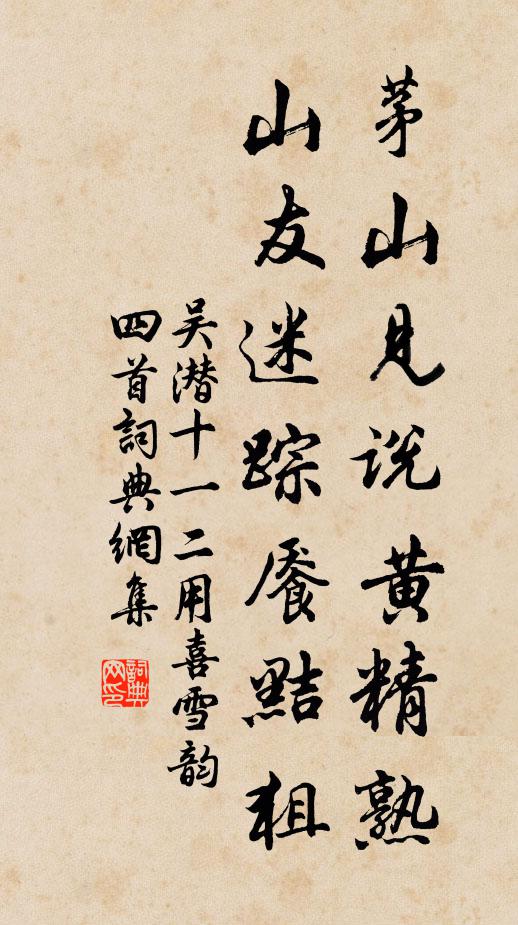 茅山見说黄精熟
山友迷踪餍點狙
吴潜十一二用喜雪韵
四首詞典網集
詞典网印